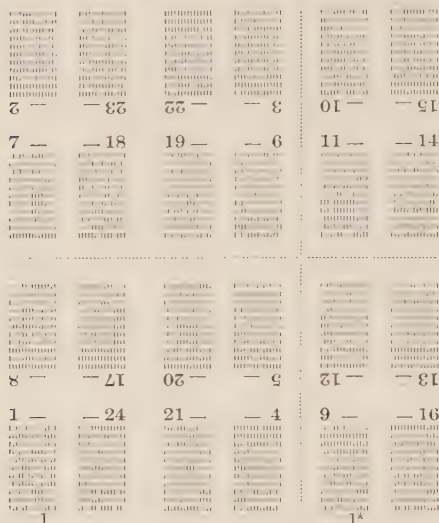 2 — — 23 22 — — 3 10 — — 15
7 — — 18 19 — — 6 11 — — 14
8 — — 17 20 — — 5 12 — — 13
1 — — 24 21 — — 4 9 — — 16
1 1*